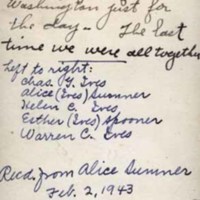 Washington just for
the day — The last
time we were all together
Left to right:
Chas. G. Eves
Alice (Eves) Sumner
Helen C. Eves
Esther (Eves) Spooner
Warren C. Eves
Recd. from Alice Sumner
Feb. 2, 1943